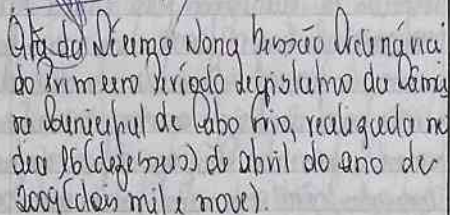 Ata da Décima Nona Sessão Ordinária
do Primeiro Período Legislativo da Câma
ra Municipal de Cabo Frio, realizada no
dia 16 (dezesseis) de abril do ano de
2009 (dois mil e nove).